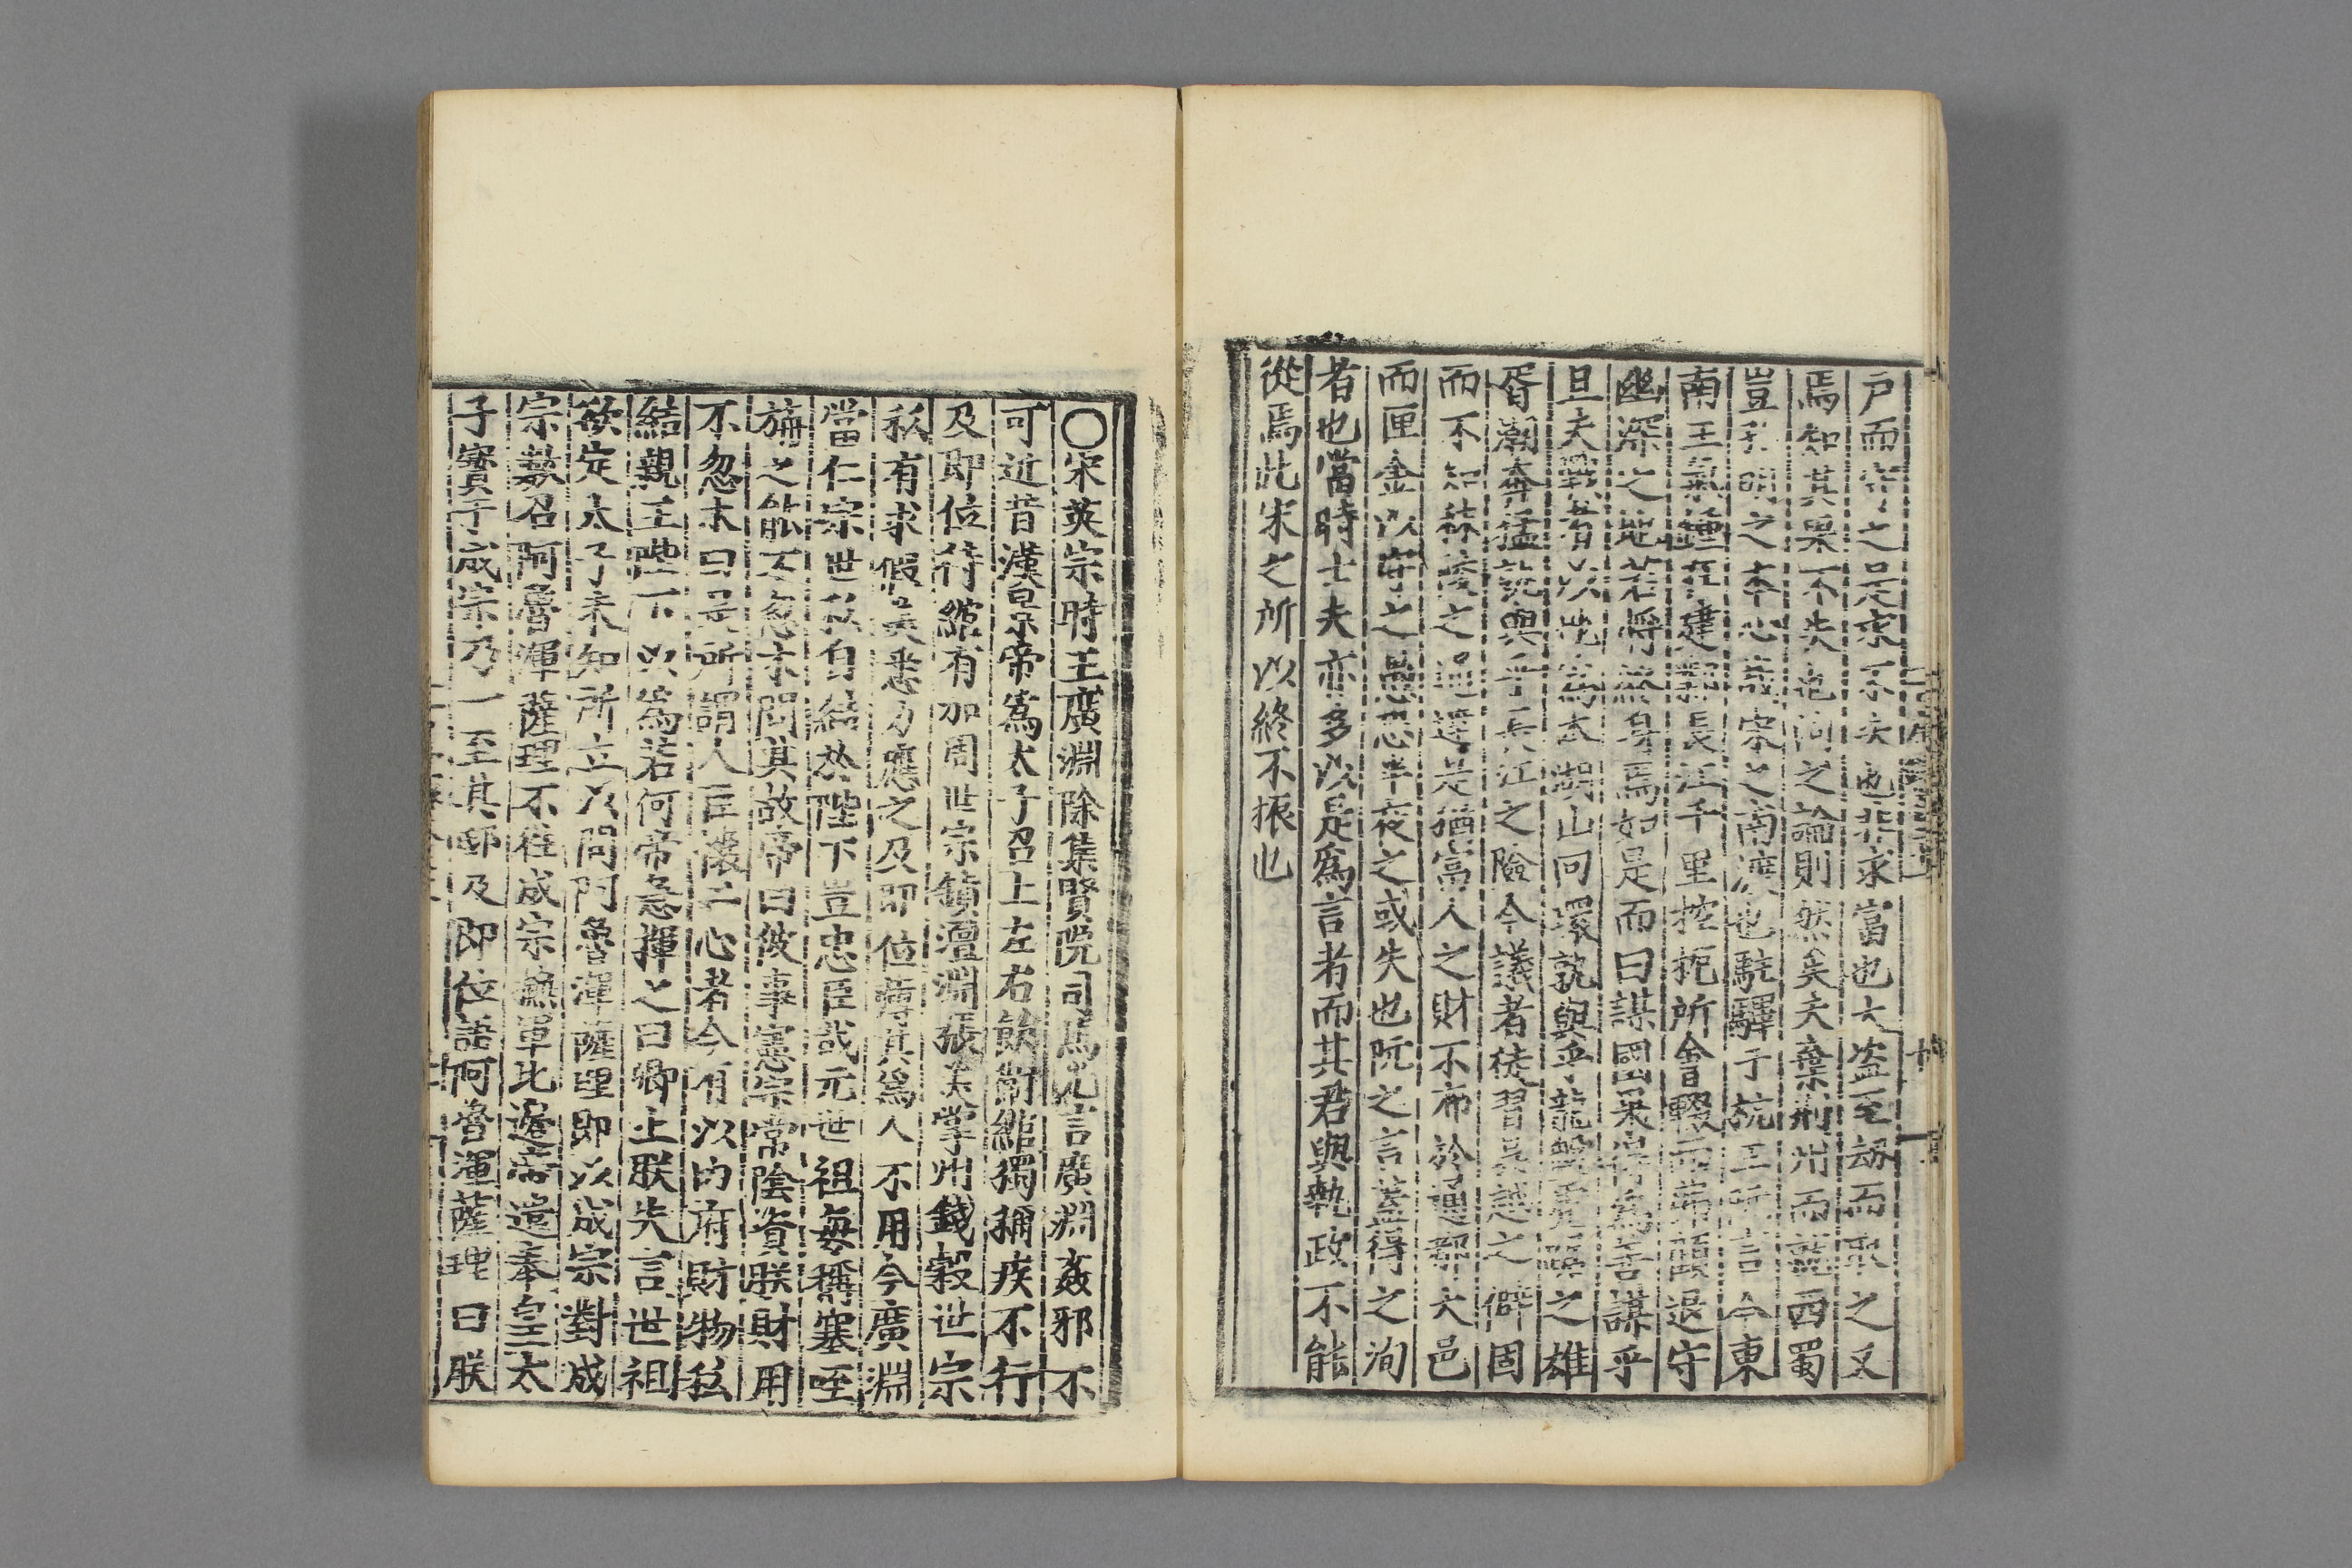 戶而守之是求不失也非求富也大盜至劫而取之又
焉知其果不失也問之論則然矣夫棄荊州而就西蜀
豈孔明之本心哉宋之南渡也駐驛于杭王阮言今東
南王氣鍾在建鄴長江千里控扼所會輟而弗顧退守
幽深之地若將終身焉如是而曰謀國果得為善謀乎
且夫戰者以地為本湖山回環孰與乎龍盤虎踞之雄
胥潮奔猛孰與乎長江之險今議者徒習吳越之僻固
而不知秣陵之通達是猶富人之財不布於通都大邑
而匣金以守之愚恐半夜之或失也阮之言蓋得之洵
者也當時士夫亦多以是爲言者而其君與執政不能
從焉此宋之所以終不振也
〇宋英宗時王廣淵除集賢院司馬光言廣淵姦邪不
可近昔漢景帝爲太子召上左右飲衛綰獨稱疾不行
及即位待綰有加周世宗鎮澶淵張美掌州錢穀世宗
私有求假美悉力應之及即位薄其爲人不用今廣淵
當仁宗世私自結於陛下豈忠臣哉元世祖每稱塞咥
旃之能不忽木問其故帝曰彼事憲宗常陰資朕財用
不忽木曰是所謂人臣懷二心者今有以内府財物私
結親王陛下以爲若何帝急揮之曰卿止朕失言世祖
欲定太子未知所立以問阿魯渾薩理即以成宗對成
宗數召阿魯渾薩理不往成宗撫軍北邊帝遣奉皇太
子寶于成宗乃一至其邸及即位語阿魯渾薩理曰朕